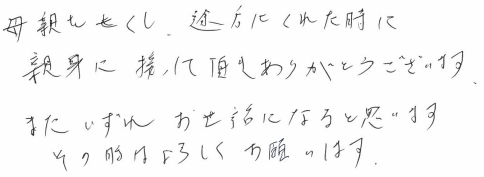 母親も亡くし、途方にくれた時に
親身に接して頂きありがとうございます。
またいずれお世話になると思います
その時はよろしくお願います。